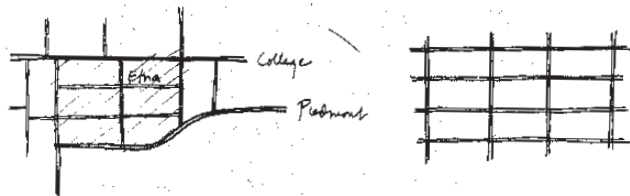 Etna
College
Piedmont